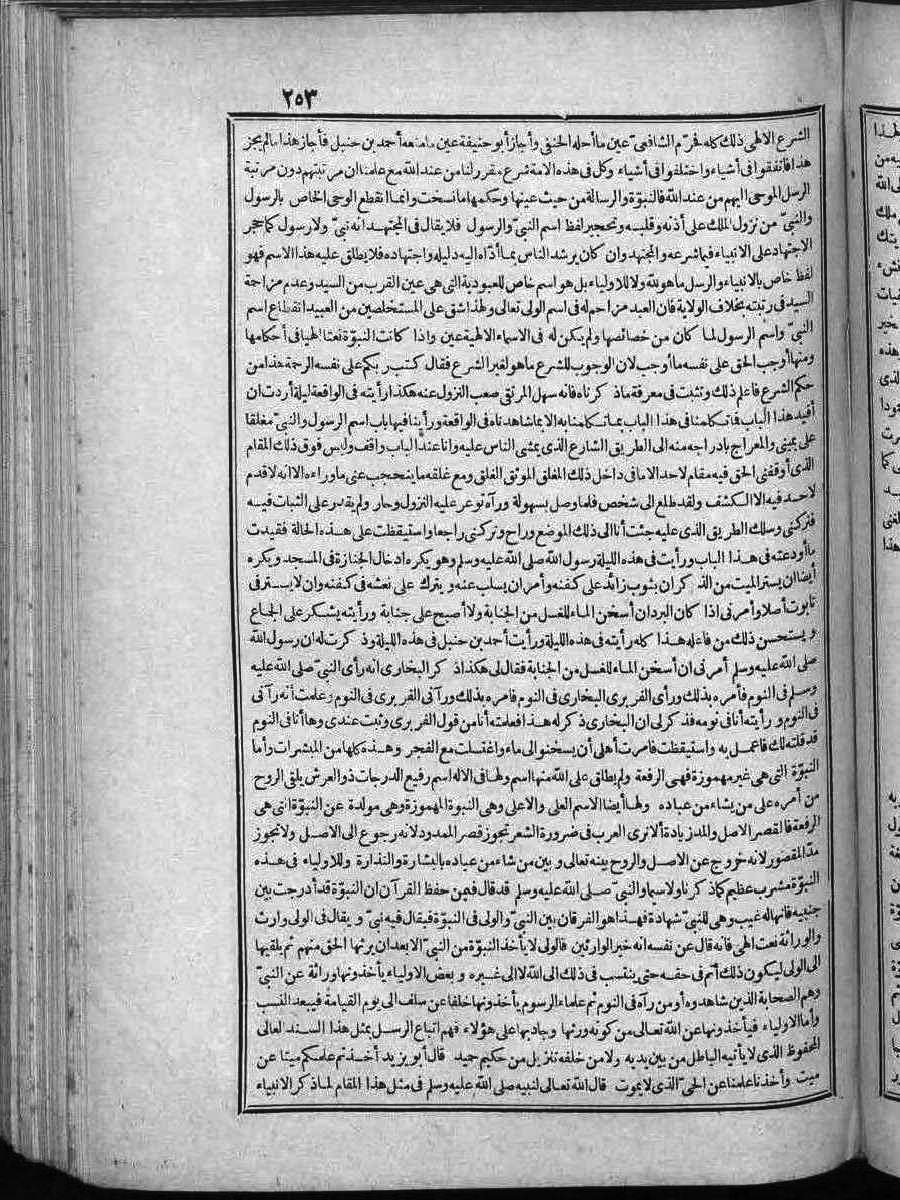 ٢٥٣
الشرع الالهى ذلك كله فحرّم الشافعىّ عين ما أحله الحنفى وأجاز أبو حنيفة عين ما منعه أحمد بن حنبل فأجاز هذا ما لم يجز
هذا فاتفقوا فى أشياء واختلفوا فى أشياء وكل فى هذه الامة شرع مقرر لنا من عند الله مع علمنا ان مرتبتهم دون مرتبة
الرسل الموحى اليهم من عند الله فالنبوّة والرسالة من حيث عينها وحكمها ما نسخت وانما انقطع الوحى الخاص بالرسول
والنبىّ من نزول الملك على أذنه وقلبه وتحجير لفظ اسم النبىّ والرسول فلا يقال فى المجتهد انه نبىّ ولا رسول كما حجر
الاجتهاد على الانبياء فيما شرعه والمجتهد وان كان يرشد الناس بما أدّاه اليه دليله واجتهاده فلا يطلق عليه هذا الاسم فهو
لفظ خاص بالانبياء والرسل ما هو لله ولا للاولياء بل هو اسم خاص للعبودية التى هى عين القرب من السيد وعدم مزاحمة
السيد فى رتبته بخلاف الولاية فان العبد مزاحم له فى اسم الولى تعالى ولهذا شق على المستخلصين من العبيد انقطاع اسم
النبىّ واسم الرسول لما كان من خصائصها ولم يكن له فى الاسماء الالهية عين واذا كانت النبوّة نعتا الهيا فى أحكامها
ومنها أوجب الحق على نفسه ما أوجب لان الوجوب للشرع ما هو لغير الشرع فقال كتب ربكم على نفسه الرحمة هذا من
حكم الشرع فاعلم ذلك وتثبت فى معرفة ماذكرناه فانه سهل المرتقى صعب النزول عنه هكذا رأيته فى الواقعة ليلة أردت ان
أقيد هذا الباب فاتكلمنا فى هذا الباب بما تكلمنا به الا بما شاهدناه فى الواقعة ورأينا فيها باب اسم الرسول والنبىّ مغلقا
على يمينى والمعراج بادراجه منه الى الطريق الشارع الذى يمشى الناس عليه وانا عند الباب واقف وليس فوق ذلك المقام
الذى أوقفنى الحق فيه مقام لاحد الا ما فى داخل ذلك المغلق الموثق الغلق ومع غلقه ما ينحجب عنى ما وراءه الا انه لا قدم
لاحد فيه الا الكشف ولقد طلع الى شخص فلما وصل بسهولة ورآه توعر عليه النزول وحار ولم يقدر على الثبات فيه
فتركنى وسلك الطريق الذى عليه جئت أنا الى ذلك الموضع وراح وتركنى راجعا واستيقظت على هذه الحالة فقيدت
ما أودعته فى هذا الباب ورأيت فى هذه الليلة رسول الله صلى الله عليه وسلم وهو يكره ادخال الجنازة فى المسجد ويكره
أيضا ان يستر الميت من الذكران بثوب زائد على كفنه وأمر ان يسلب عنه ويترك على نعشه فى كفنه وان لا يستر فى
تابوت أصلا وأمرنى اذا كان البرد ان أسخن الماء للغسل من الجنابة ولا أصبح على جنابة ورأيته يشكر على الجماع
ويستحسن ذلك من فاعله هذا كله رأيته فى هذه الليلة ورأيت أحمد بن حنبل فى هذه الليلة وذكرت له ان رسول الله
صلى الله عليه وسلم أمرنى ان أسخن الماء للغسل من الجنابة فقال لى هكذا ذكر البخارى انه رأى النبىّ صلى الله عليه
وسلم فى النوم فأمره بذلك ورأى الفربرى البخارى فى النوم فامره بذلك ورآنى الفربرى فى النوم وعلمت أنه رآنى
فى النوم ورأيته أنا فى نومه فذكر لى ان البخارى ذكر له هذا فعلمته أنا من قول الفربرى وثبت عندى وها أنا فى النوم
قد قلته لك فاعمل به واستيقظت فامرت أهلى أن يسخنوا لى ماء واغتسلت مع الفجر وهذة كلها من المبشرات وأما
النبوّة التى هى غير مهموزة فهى الرفعة ولم يطلق على الله منها اسم ولها فى الاله اسم رفيع الدرجات ذو العرش يلقى الروح
من أمره على من يشاء من عباده ولها أيضا الاسم العلى والاعلى وهى النبوة المهموزة وهى مولدة عن النبوّة التى هى
الرفعة فالقصر الاصل والمد زيادة ألا ترى العرب فى ضرورة الشعر تجوز قصر الممدود لانه رجوع الى الاصل ولا تجوز
مدّ المقصور لانه خروج عن الاصل والروح بينه تعالى وبين من شاء من عباده بالبشارة والنذارة وللاولياء فى هذه
النبوّة مشرب عظيم كما ذكرنا ولا سيما والنبىّ صلى الله عليه وسلم قد قال فيمن حفظ القرآن ان النبوّة قد أدرجت بين
جنبيه فانها له غيب وهى للنبىّ شهادة فهذا هو الفرقان بين النبىّ والولى فى النبوّة فيقال فيه نبىّ ويقال فى الولى وارث
والوراثة نعت الهى فانه قال عن نفسه انه خير الوارثين فالولى لا يأخذ النبوّة من النبىّ الا بعد ان يرثها الحق منهم ثم يلقيها
الى الولى ليكون ذلك أتم فى حقه حتى ينتسب فى ذلك الى الله لا الى غيره وبعض الاولياء يأخذونها وراثة عن النبىّ
وهم الصحابة الذين شاهدوه أو من رآه فى النوم ثم علماء الرسوم يأخذونها خلفا عن سلف الى يوم القيامة فيبعد النسب
وأما الاولياء فيأخذونها عن الله تعالى من كونه ورثها وجاد بها على هؤلاء فهم اتباع الرسل بمثل هذا السند العالى
المحفوظ الذى لا يأتيه الباطل من بين يديه ولا من خلفه تنزيل من حكيم حميد قال أبو يزيد أخذتم علمكم ميتا عن
ميت وأخذنا علمنا عن الحىّ الذى لا يموت قال الله تعالى لنبيه صلى الله عليه وسلم فى مثل هذا المقام لما ذكر الانبياء